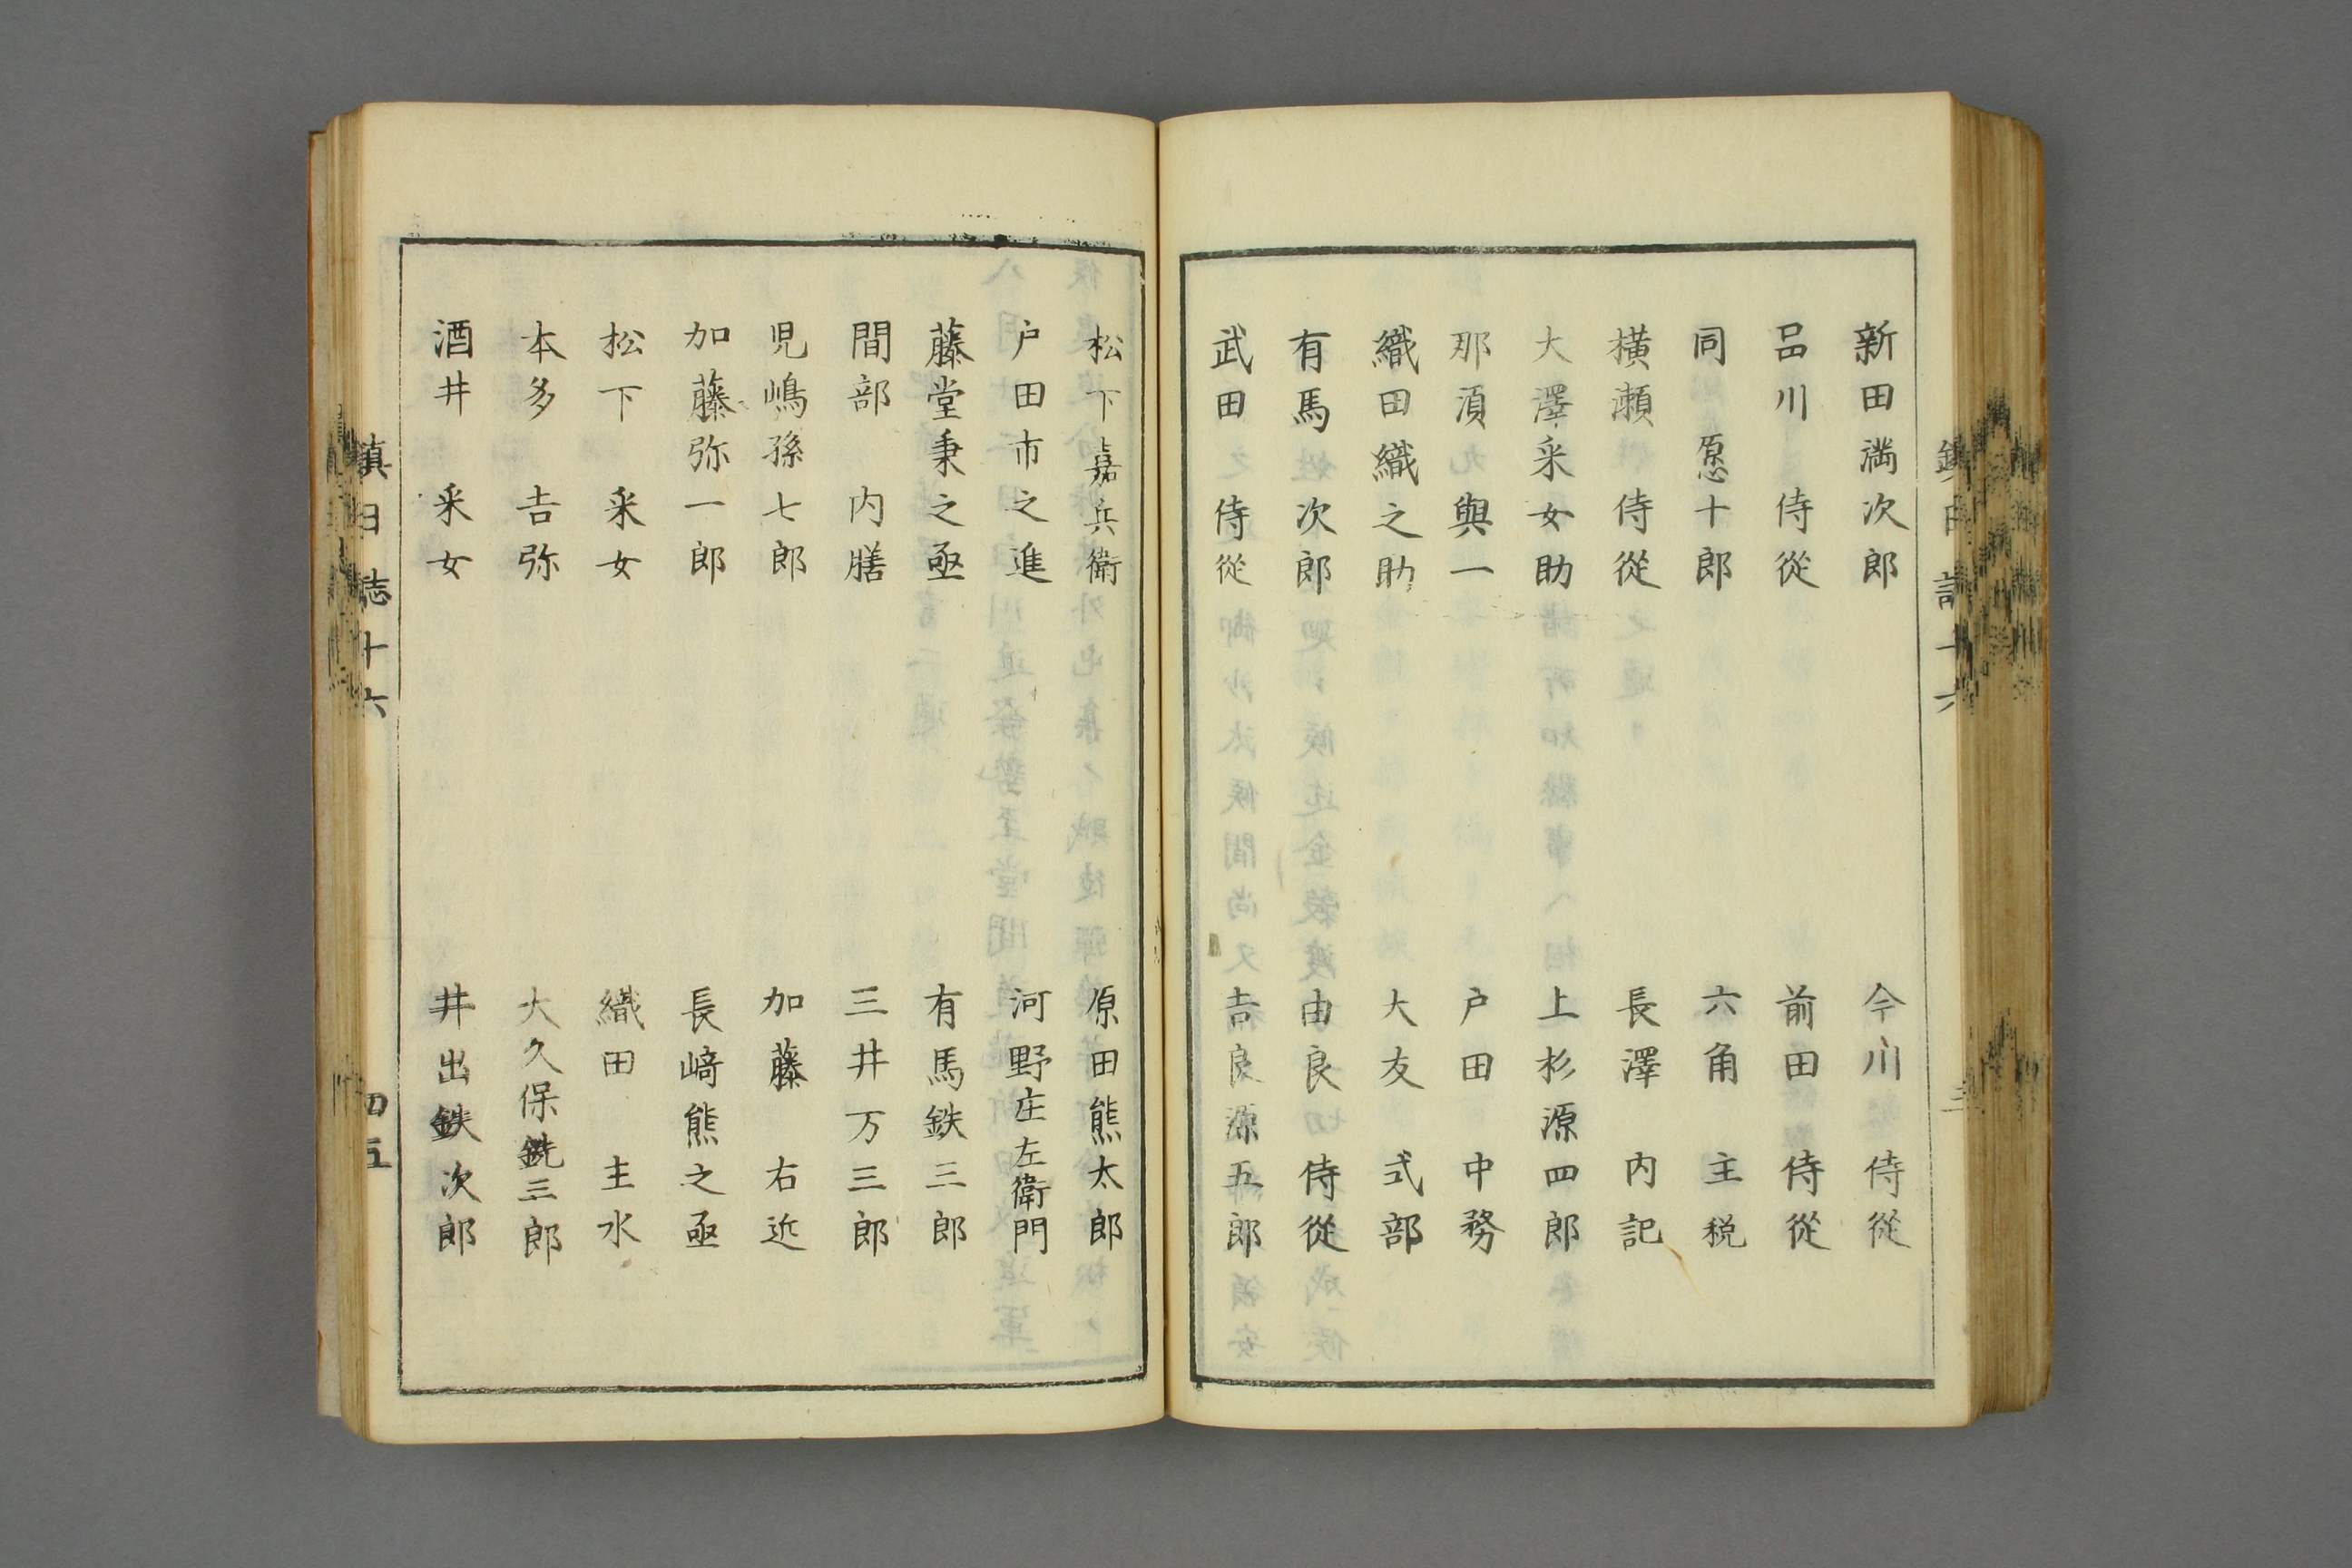 新田満次郎　今川侍從
品川侍從　前田侍從
同　愿十郎　六角主税
横瀬侍從　長澤内記
大澤采女助　上杉源四郎
那須與一　戸田中務
織田織之助　大友式部
有馬次郎　由良侍從
武田侍從　吉良源五郎
松下嘉兵衛　原田熊太郎
戸田市之進　河野庄左衛門
藤堂秉之亟　有馬鉄三郎
間部内膳　三井万三郎
児嶋孫七郎　加藤右近
加藤弥一郎　長﨑熊之亟
松下采女　織田主水
本多吉弥　大久保銑三郎
酒井采女　井出鉄次郎
鎮日誌十六　四五